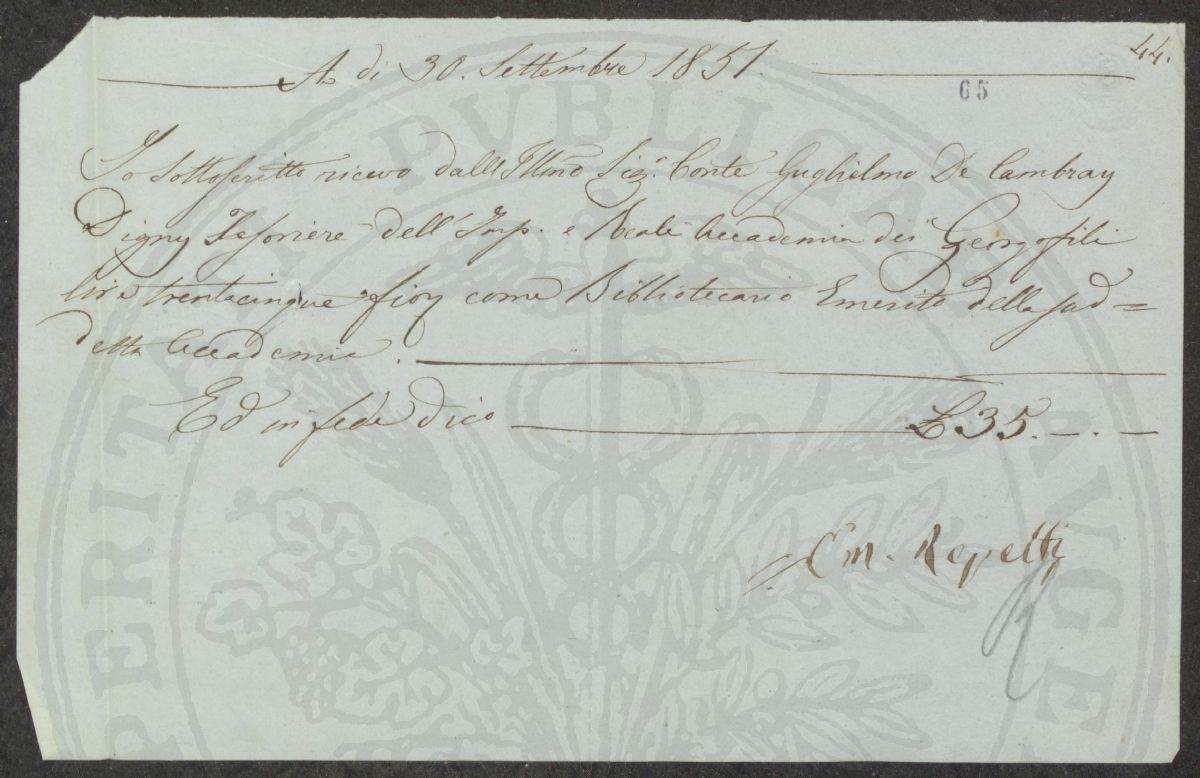 44.
A di 30. Settembre 1851.
65
Io sottoscritto ricevo dall'Illmo Sigr. Conte Guglielmo De Cambray
Digny Tesoriere dell'Imp. e Reale Accademia dei Georgofili
lire trentacinque fior come Bibliotecario Emerito della sud=
detta Accademia.
Ed in fede dico £ 35. – . –
Em. Repetti
PROSPERITATI PVBLICAE AVGENDAE